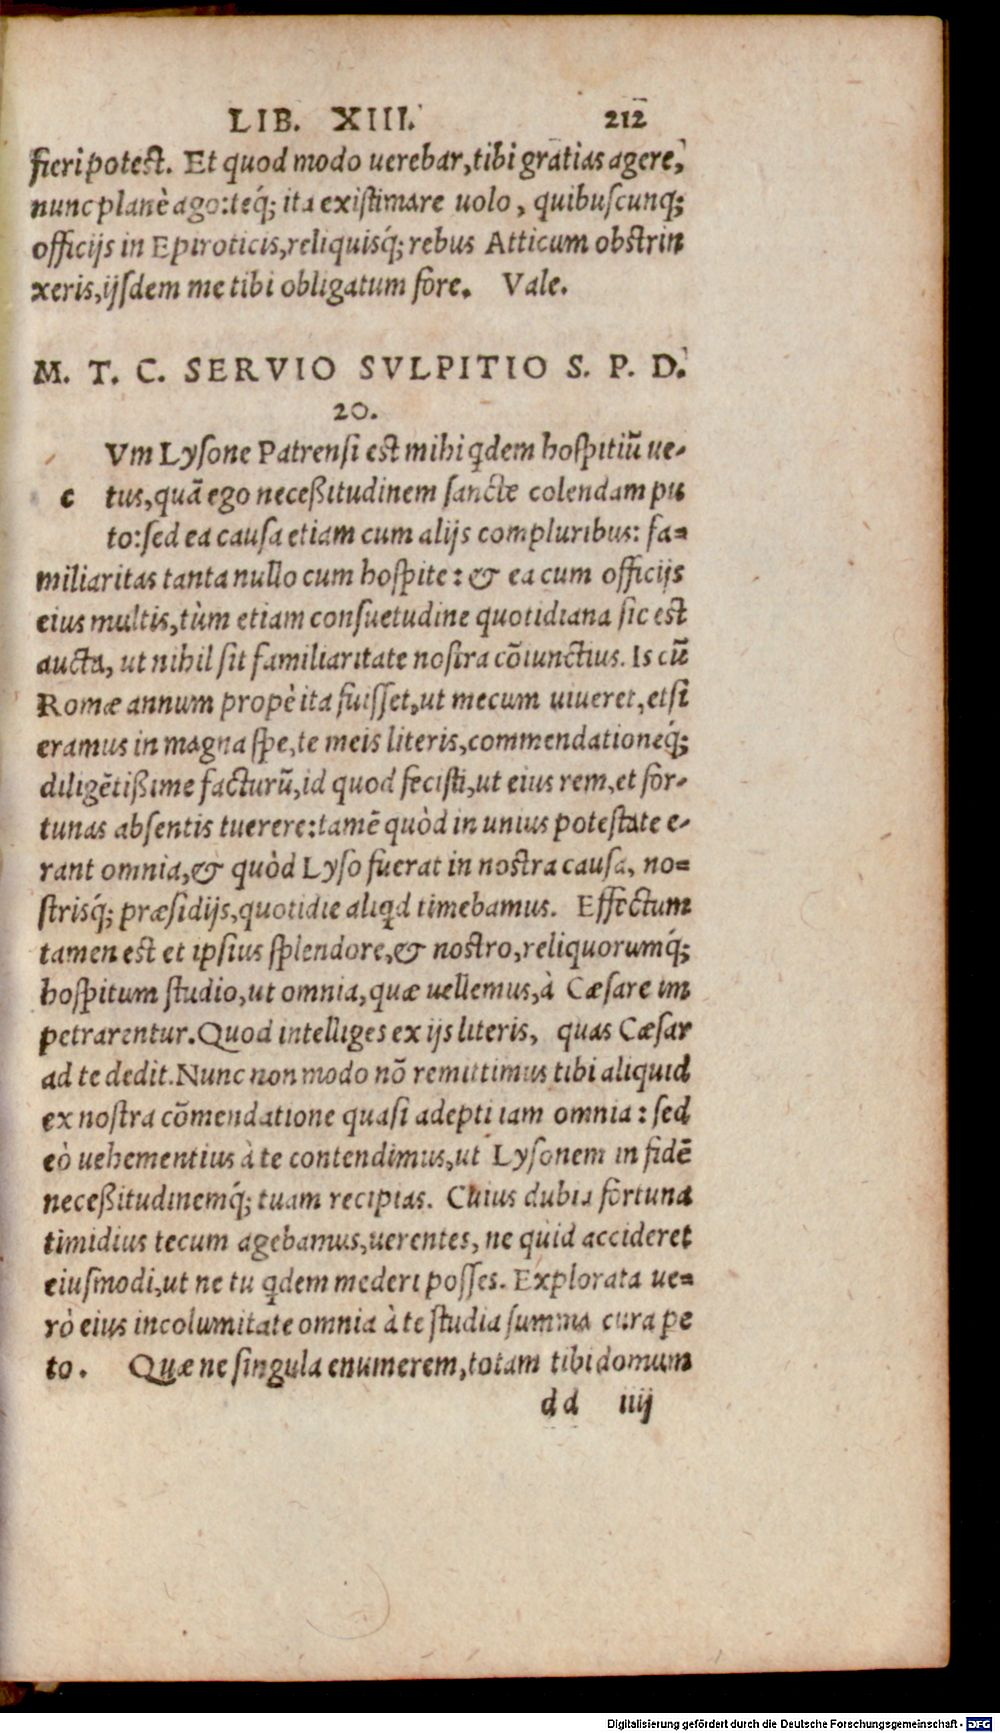 LIB. XIII. 212
fieri potest. Et quod modo uerebar, tibi gratias agere,
nunc planè ago: teq́; ita existimare uolo, quibuscunq;
officijs in Epiroticis, reliquisq́; rebus Atticum obstrin
xeris, ijsdem me tibi obligatum fore. Vale.
M. T. C. SERVIO SVLPITIO S. P. D.
20.
Vm Lysone Patrensi est mihi qdem hospitiũ ue-
c tus, quã ego neceßitudinem sancte colendam pu
to: sed ea causa etiam cum alijs compluribus: fa=
miliaritas tanta nullo cum hospite: & ea cum officijs
eius multis, tùm etiam consuetudine quotidiana sic est
aucta, ut nihil sit familiaritate nostra cõiunctius. Is cũ
Romæ annum propè ita fuisset, ut mecum uiueret, etsi
eramus in magna spe, te meis literis, commendationeq́;
diligẽtißime facturũ, id quod fecisti, ut eius rem, et for-
tunas absentis tuerere: tamẽ quòd in unius potestate e-
rant omnia, & quòd Lyso fuerat in nostra causa, no=
strisq́; præsidijs, quotidie aliqd timebamus. Effectum
tamen est et ipsius splendore, & nostro, reliquorumq́;
hospitum studio, ut omnia, quæ uellemus, à Cæsare im
petrarentur. Quod intelliges ex ijs literis, quas Cæsar
ad te dedit. Nunc non modo nõ remittimus tibi aliquid
ex nostra cõmendatione quasi adepti iam omnia: sed
eò uehementius à te contendimus, ut Lysonem in fidẽ
neceßitudinemq́; tuam recipias. Cuius dubia fortuna
timidius tecum agebamus, uerentes, ne quid accideret
eiusmodi, ut ne tu qdem mederi posses. Explorata ue=
rò eius incolumitate omnia à te studia summa cura pe
to. Quæ ne singula enumerem, totam tibi domum
dd iiij
Digitalisierung gefördert durch die Deutsche Forschungsgemeinschaft - DFG